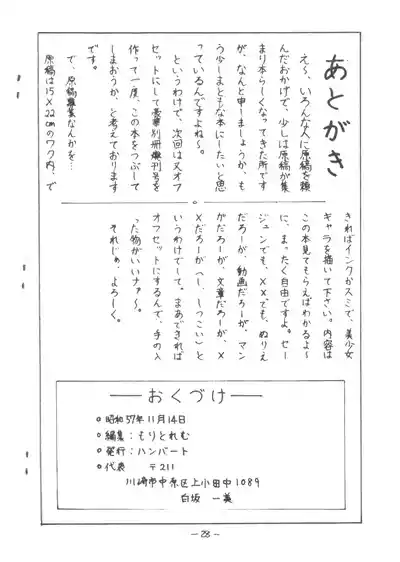 あとがき
え〜、いろんな人に原稿を頼
んだおかげで、少しは原稿が集
まり本らしくなってきた所です
が、なんと申しましょうか、も
う少しまともな本にしたいと思
っているんですよね〜。
というわけで、次回は丈オフ
セットにして豪華別冊爆刊号を
作って一度、この本をつぶして
しまおうか、と考えております
です。
で、原稿募集なんかを…
原稿は15×22cmのワク内、で
きればインクかスミで、美少女
キャラを描いて下さい。内容は
この本見てもらえばわかるよー
に、まったく自由ですよ。セー
ジュンでも、××でも、ぬりえ
だろーが、動画だろーが、マン
がだろーが、文章だろーが、×
×だろーが(し、しつこい)と
いうわけでして。まあできれば
オフセットにするんで、手の入
った物がいいナァ〜。
それじゃ、よろしく。
おくづけ
○昭和57年11月14日
○編集:もりとれむ
○発行:ハンバート
○代表 〒211
川崎市中原区上小田中1089
白坂 一美
-28-